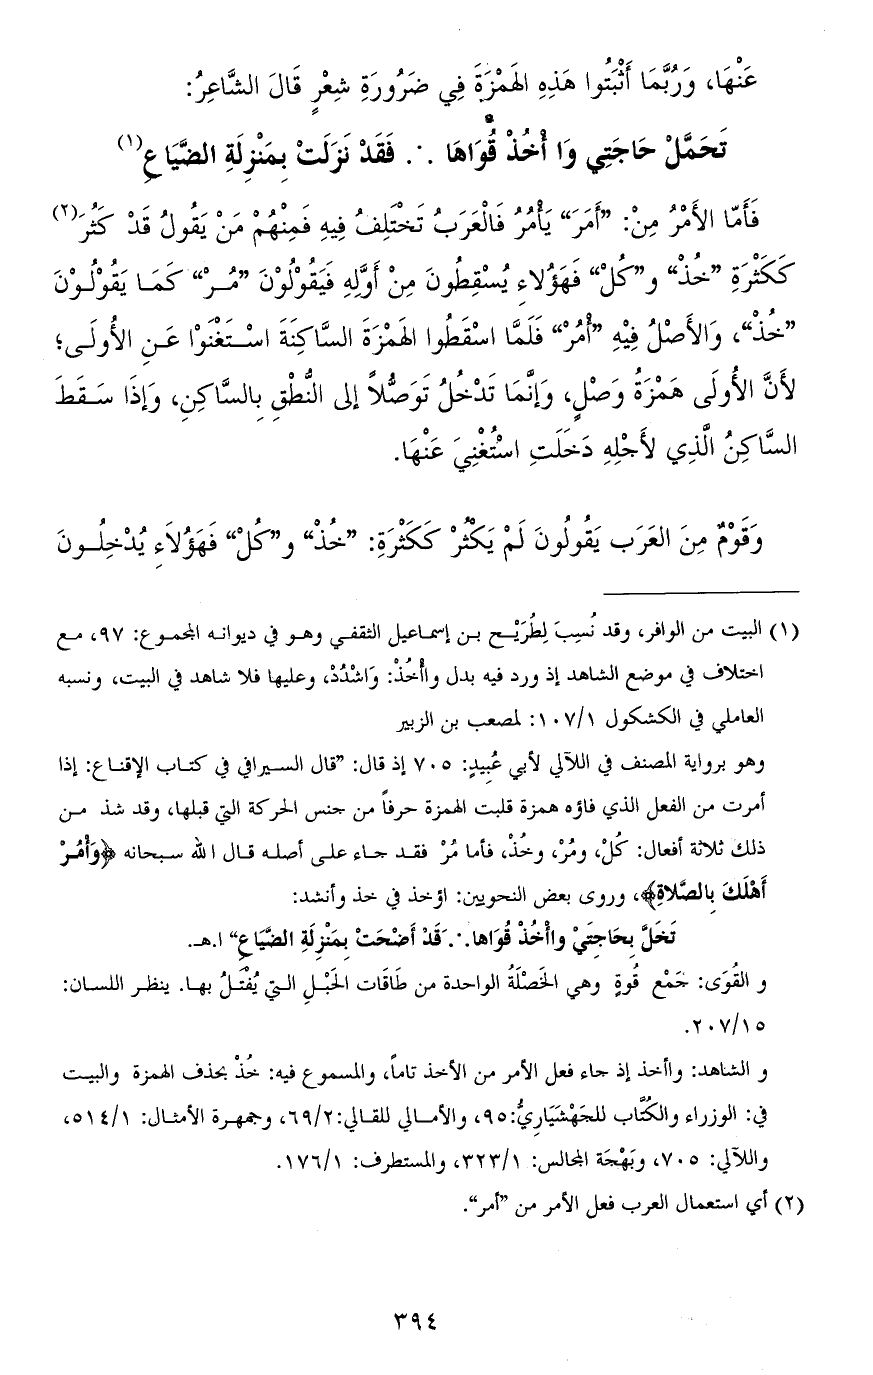 عَنْهَا، وَرُبَّمَا أَثْبَتُوا هَذِهِ الهَمْزَةَ فِي ضَرُورَةِ شِعْرٍ قَالَ الشَّاعِرُ:
تَحَمَّلْ حَاجَتِي وَا أْخُذْ قُوَاهَا ∴ فَقَدْ نَزَلَتْ بِمَنْزِلَةِ الضَّيَاعِ(١)
فَأَمّا الأَمْرُ مِنْ: ”أَمَرَ“ يَأْمُرُ فَالْعَرَبُ تَخْتَلِفُ فِيهِ فَمِنْهُمْ مَنْ يَقُولُ قَدْ كَثُرَ(٢)
كَكَثْرَةِ ”خُذْ“ و”كُلْ“ فَهَؤُلاءِ يُسْقِطُونَ مِنْ أَوَّلِهِ فَيَقُولُوْنَ ”مُرْ“ كَمَا يَقُولُوْنَ
”خُذْ“، وَالأَصْلُ فِيْهِ ”أُمُرْ“ فَلَمَّا اسْقَطُوا الهَمْزَةَ السَّاكِنَةَ اسْتَغْنَوْا عَنِ الأُولَى؛
لأَنَّ الأُولَى هَمْزَةُ وَصْلٍ، وَإِنَّمَا تَدْخُلُ تَوَصُّلاً إلى النُّطْقِ بِالسَّاكِنِ، وَإِذَا سَقَطَ
السَّاكِنُ الَّذِي لأَجْلِهِ دَخَلَتِ اسْتُغْنِيَ عَنْهَا.
وَقَوْمٌ مِنَ العَرَب يَقُولُونَ لَمْ يَكْثُرْ كَكَثْرَةِ: ”خُذْ“ و”كُلْ“ فَهَؤُلاَءِ يُدْخِلُونَ
(١) البيت من الوافر، وقد نُسِبَ لِطُرَيْح بن إسماعيل الثقفي وهو في ديوانه المجموع: ٩٧، مع
اختلاف في موضع الشاهد إذ ورد فيه بدل واأْخُذْ: وَاشْدُدْ، وعليها فلا شاهد في البيت، ونسبه
العاملي في الكشكول ١٠٧/١: لمصعب بن الزبير
وهو برواية المصنف في اللآلي لأبي عُبيدٍ: ٧٠٥ إذ قال: ”قال السيرافي في كتاب الإقناع: إذا
أمرت من الفعل الذي فاؤه همزة قلبت الهمزة حرفاً من جنس الحركة التي قبلها، وقد شذ من
ذلك ثلاثة أفعال: كُلْ، ومُرْ، وخُذْ، فأما مُرْ فقد جاء على أصله قال الله سبحانه ﴿وَأْمُرْ
أَهْلَكَ بِالصَّلاةِ﴾، وروى بعض النحويين: اؤخذ في خذ وأنشد:
تَخَلَّ بِحَاجَتِيْ واأْخُذْ قُوَاها ∴ قَدْ أَضْحَتْ بِمَنْزِلَةِ الضَّيَاعِ“ ا.هـ.
و القُوَى: جَمْع قُوةٍ وهي الخَصْلَةُ الواحدة من طَاقَات الحَبْلِ التي يُفْتَلُ بها. ينظر اللسان:
٢٠٧/١٥.
و الشاهد: واأخذ إذ جاء فعل الأمر من الأخذ تاماً، والمسموع فيه: خُذْ بحذف الهمزة والبيت
في: الوزراء والكُتَّاب للجَهْشَيَارِيُّ:٩٥، والأمالي للقالي:٦٩/٢، وجمهرة الأمثال: ٥١٤/١،
واللآلي: ٧٠٥، وبَهْجَة المجالس: ٣٢٣/١، والمستطرف: ١٧٦/١.
(٢) أي استعمال العرب فعل الأمر من ”أمر“.
٣٩٤